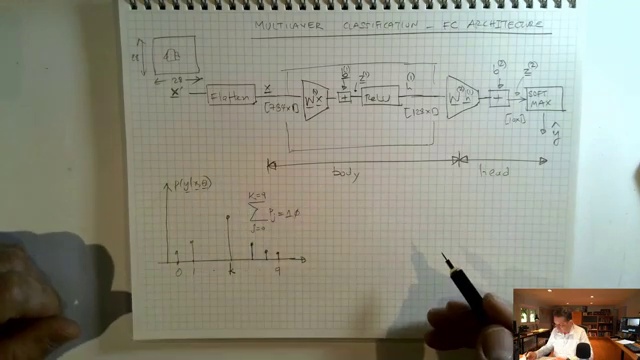 MULTILAYER CLASSIFICATION _ FC ARCHITECTURE
28
28
x' Flatten x [784x1] W⁽¹⁾x b⁽¹⁾ + z⁽¹⁾ ReLU h⁽¹⁾ [128x1] W⁽²⁾h⁽¹⁾ b⁽²⁾ + z⁽²⁾ [10x1] SOFT MAX
ŷ
body head
p(y|x,θ)
K=9
∑ Pj = 1.0
j=0
0 1 k 9